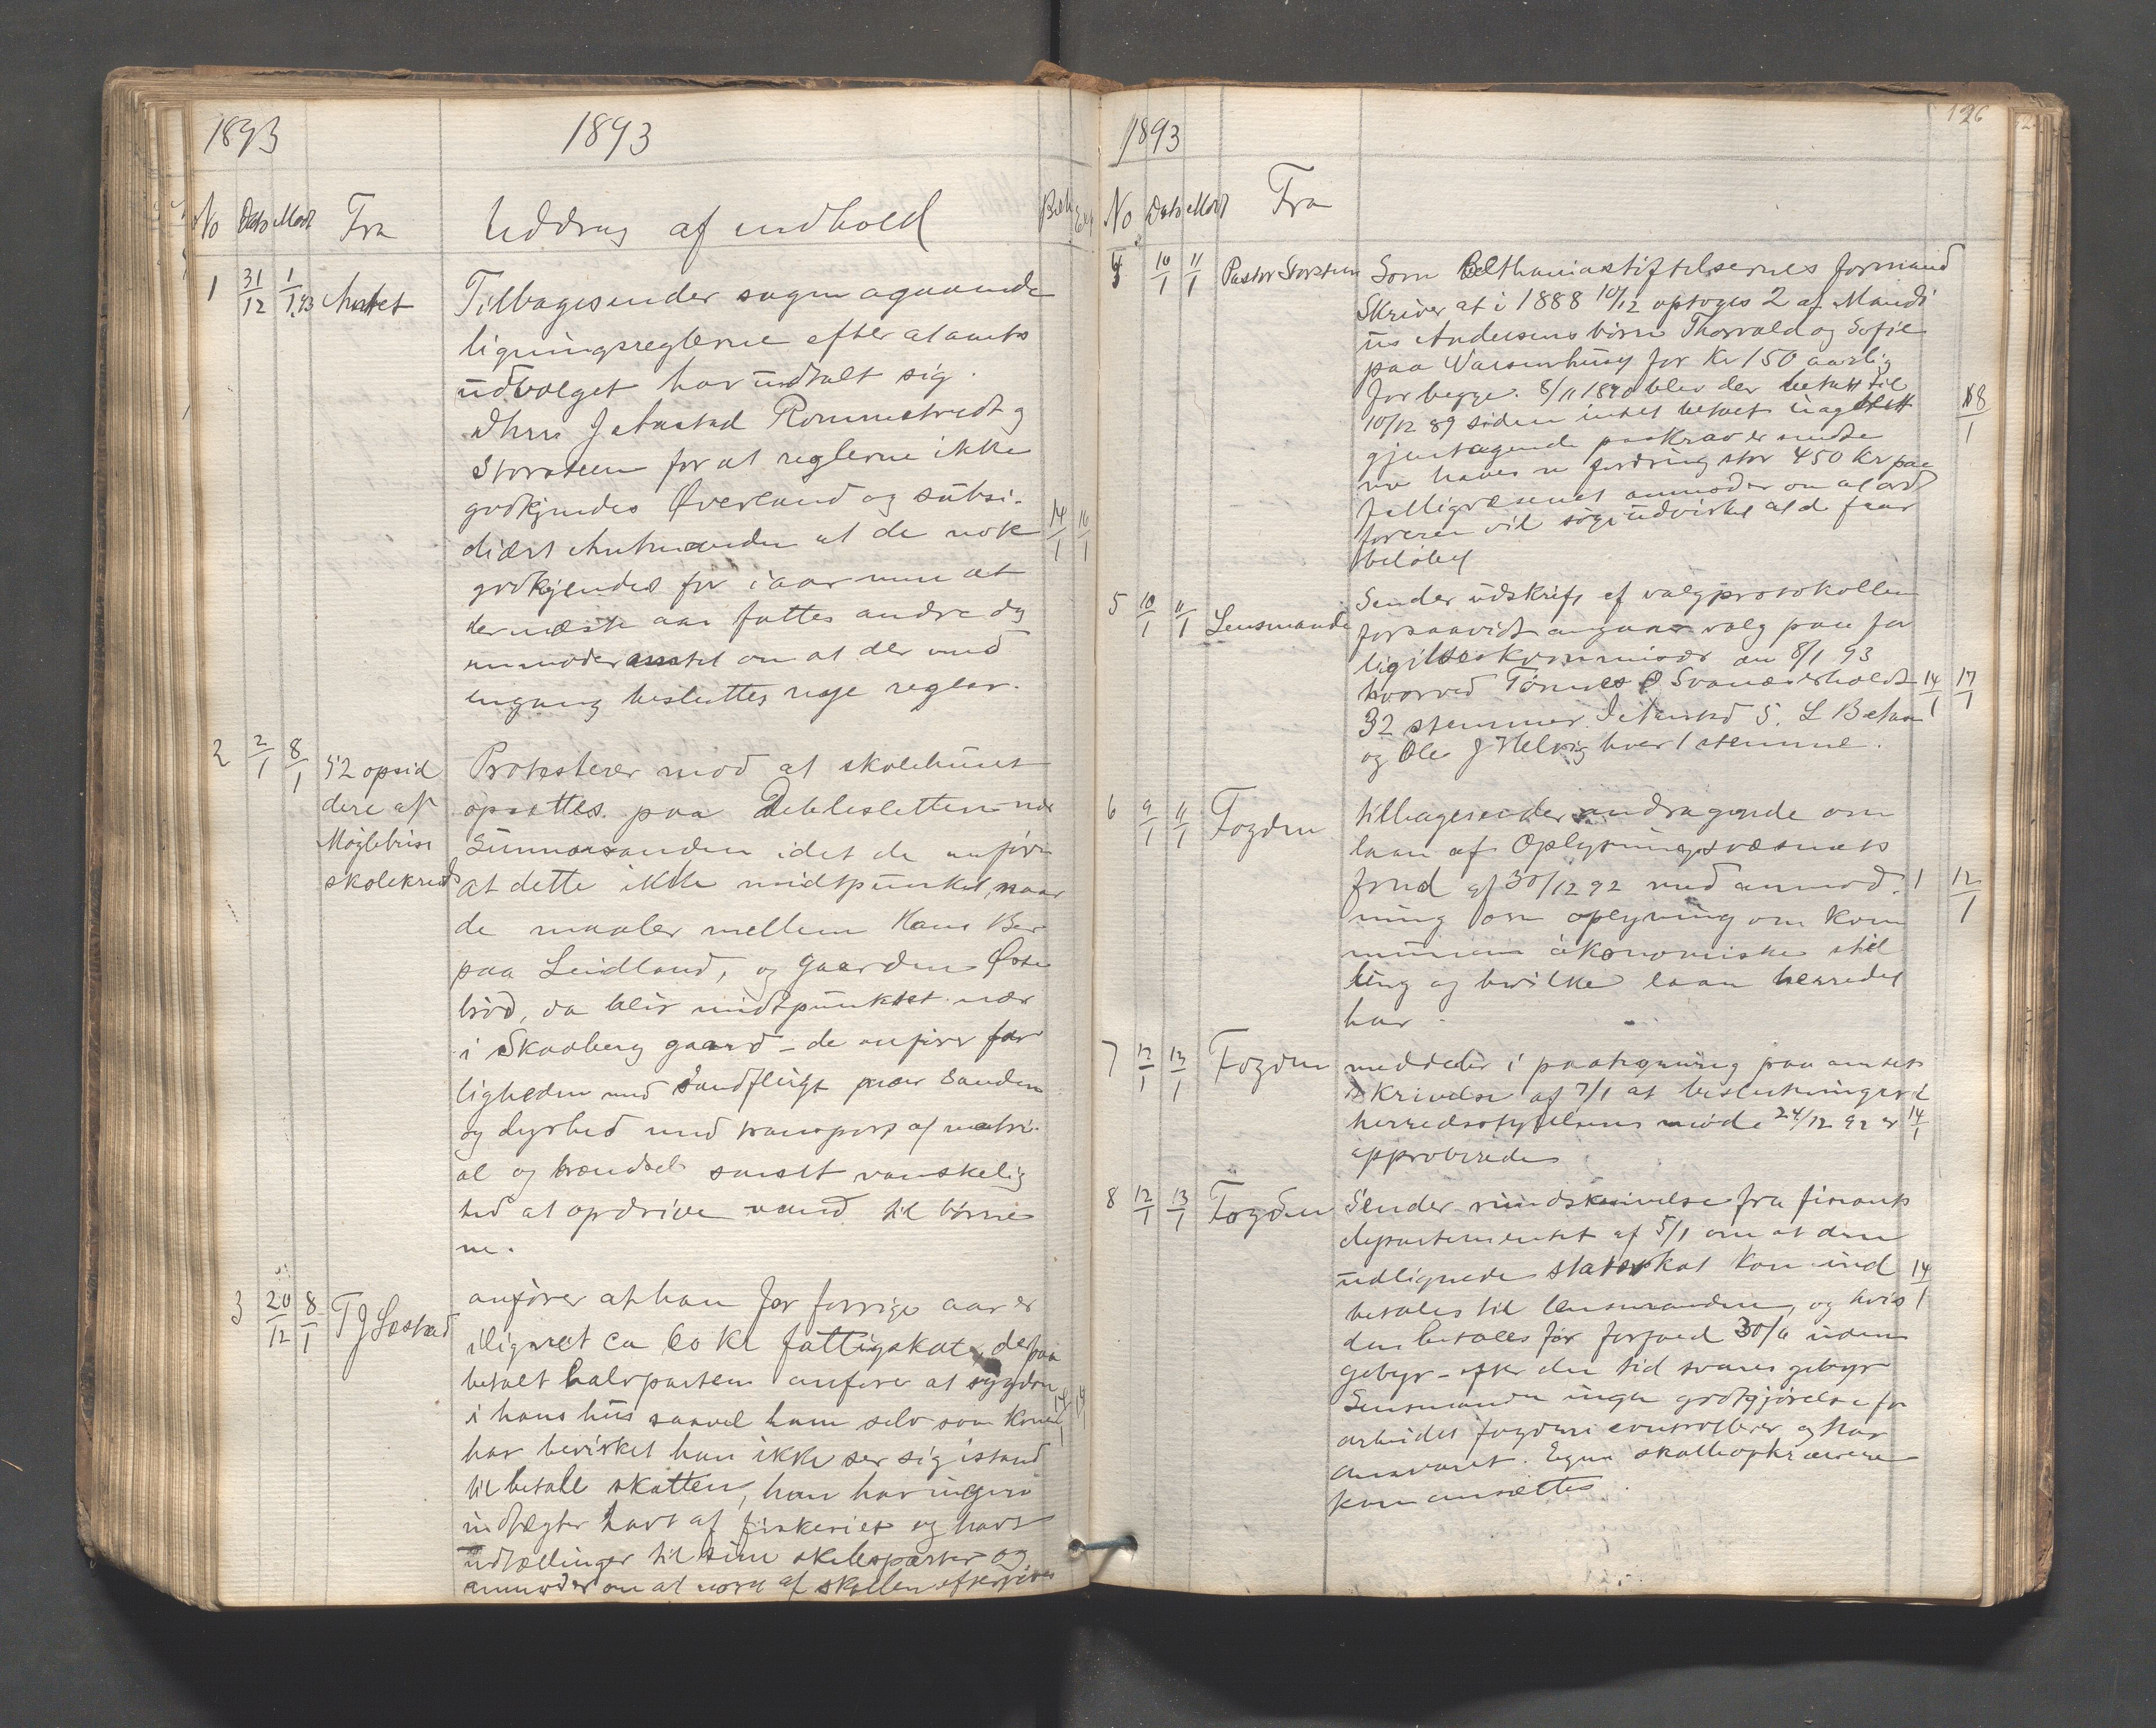 1893 1893
No Dato Modt Fra Uddrag af indhold Beh Exp
1 31/12 1/1 93 Amtet Tilbagesender sagen agaaende
ligningsreglerne efter at amts
udvalget har udtalt sig.
Storsteen for at reglerne ikke
godkjendes Øverland og subsi-
diært Amtmanden at de nok 14/1 16/1
godkjendes for iaar men at
der næste aar fattes andre og
anmoder amtet om at der med
engang besluttes nye regler.
2 2/1 8/1 52 opsid Protesterer mod at skolehuset
dere af opsættes paa
skolekreds at dette ikke midtpunket, naar
de maaler mellem Hans
paa Leidland, og gaarden
brød, da blir midtpunktet nær
i Skadberg gaard - de anfører far
ligheden med Sandflugt nær Sanden
og dyrhed med transport af matri-
al og brændsel samt vanskelig
hed at opdrive vand til børne
ne.
3 20/12 8/1 T J anfører at han for forrige aar er
ilignet ca 60 kr fattigskat, derpaa
betalt halvparten anfører at sygdom
i hans hus saavel ham selv som konen
har bevirket han ikke ser sig istand
til betale skatten, han har ingen
indtægter havt af fiskeriet og havt
udtællinger til sine skibsparter og
anmoder om at noget af skatten eftergives
1893 126
No Dato Modt Fra
4 10/1 11/1 Pastor Storsteen Som Bethaniastiftelsernes formand
Skriver at i 1888 10/12 optoges 2 af
Andersens børn Thorvald og Sofie
paa Waisenhuset for Kr 150 aarlig
for begge. 8/11 1890 blev der betalt til
10/12 89 siden intet betalt 18/1
gjentagende paakrav er sendte
nu haves en fordring stor 450 Kr paa
fattigvæsenet anmoder om at ord
føreren vil søge udvirket at de faar
beløbet
5 10/1 11/1 Lensmanden Sender udskrift af valgprotokollen
forsaavidt angaar valg paa for
ligelseskommisær den 8/1 93
hvorved Tønnes Svanæs erholdt 14/1 17/1
32 stemmer
og Ole J Helvig hver 1 stemme.
6 9/1 11/1 Fogden tilbagesender andragende om
laan af Oplysningsvæsenets
fond af 30/12 92 med anmod- 1 12/1
ning om oplysning om kom
munens økonomiske stil
ling og hvilke laan herredet
har.
7 12/1 13/1 Fogden meddeler i paategning paa amtets
skrivelse af 7/1 at beslutninger i
herredsstyrelsens møde 24/12 92 er 14/1
approberede
8 12/1 13/1 Fogden Sender rundskrivelse fra finants
departementet af 5/1 om at den
udlignede statsskat kan ind 14/1
betales til lensmanden, og hvis
den betales før forfald 30/6 uden
gebyr - efter den tid svares gebyr
Lensmanden ingen godtgjørelse for
arbeidet fogden controllerer og har
ansvaret. Egne skatteopkrævere
kan ansættes.